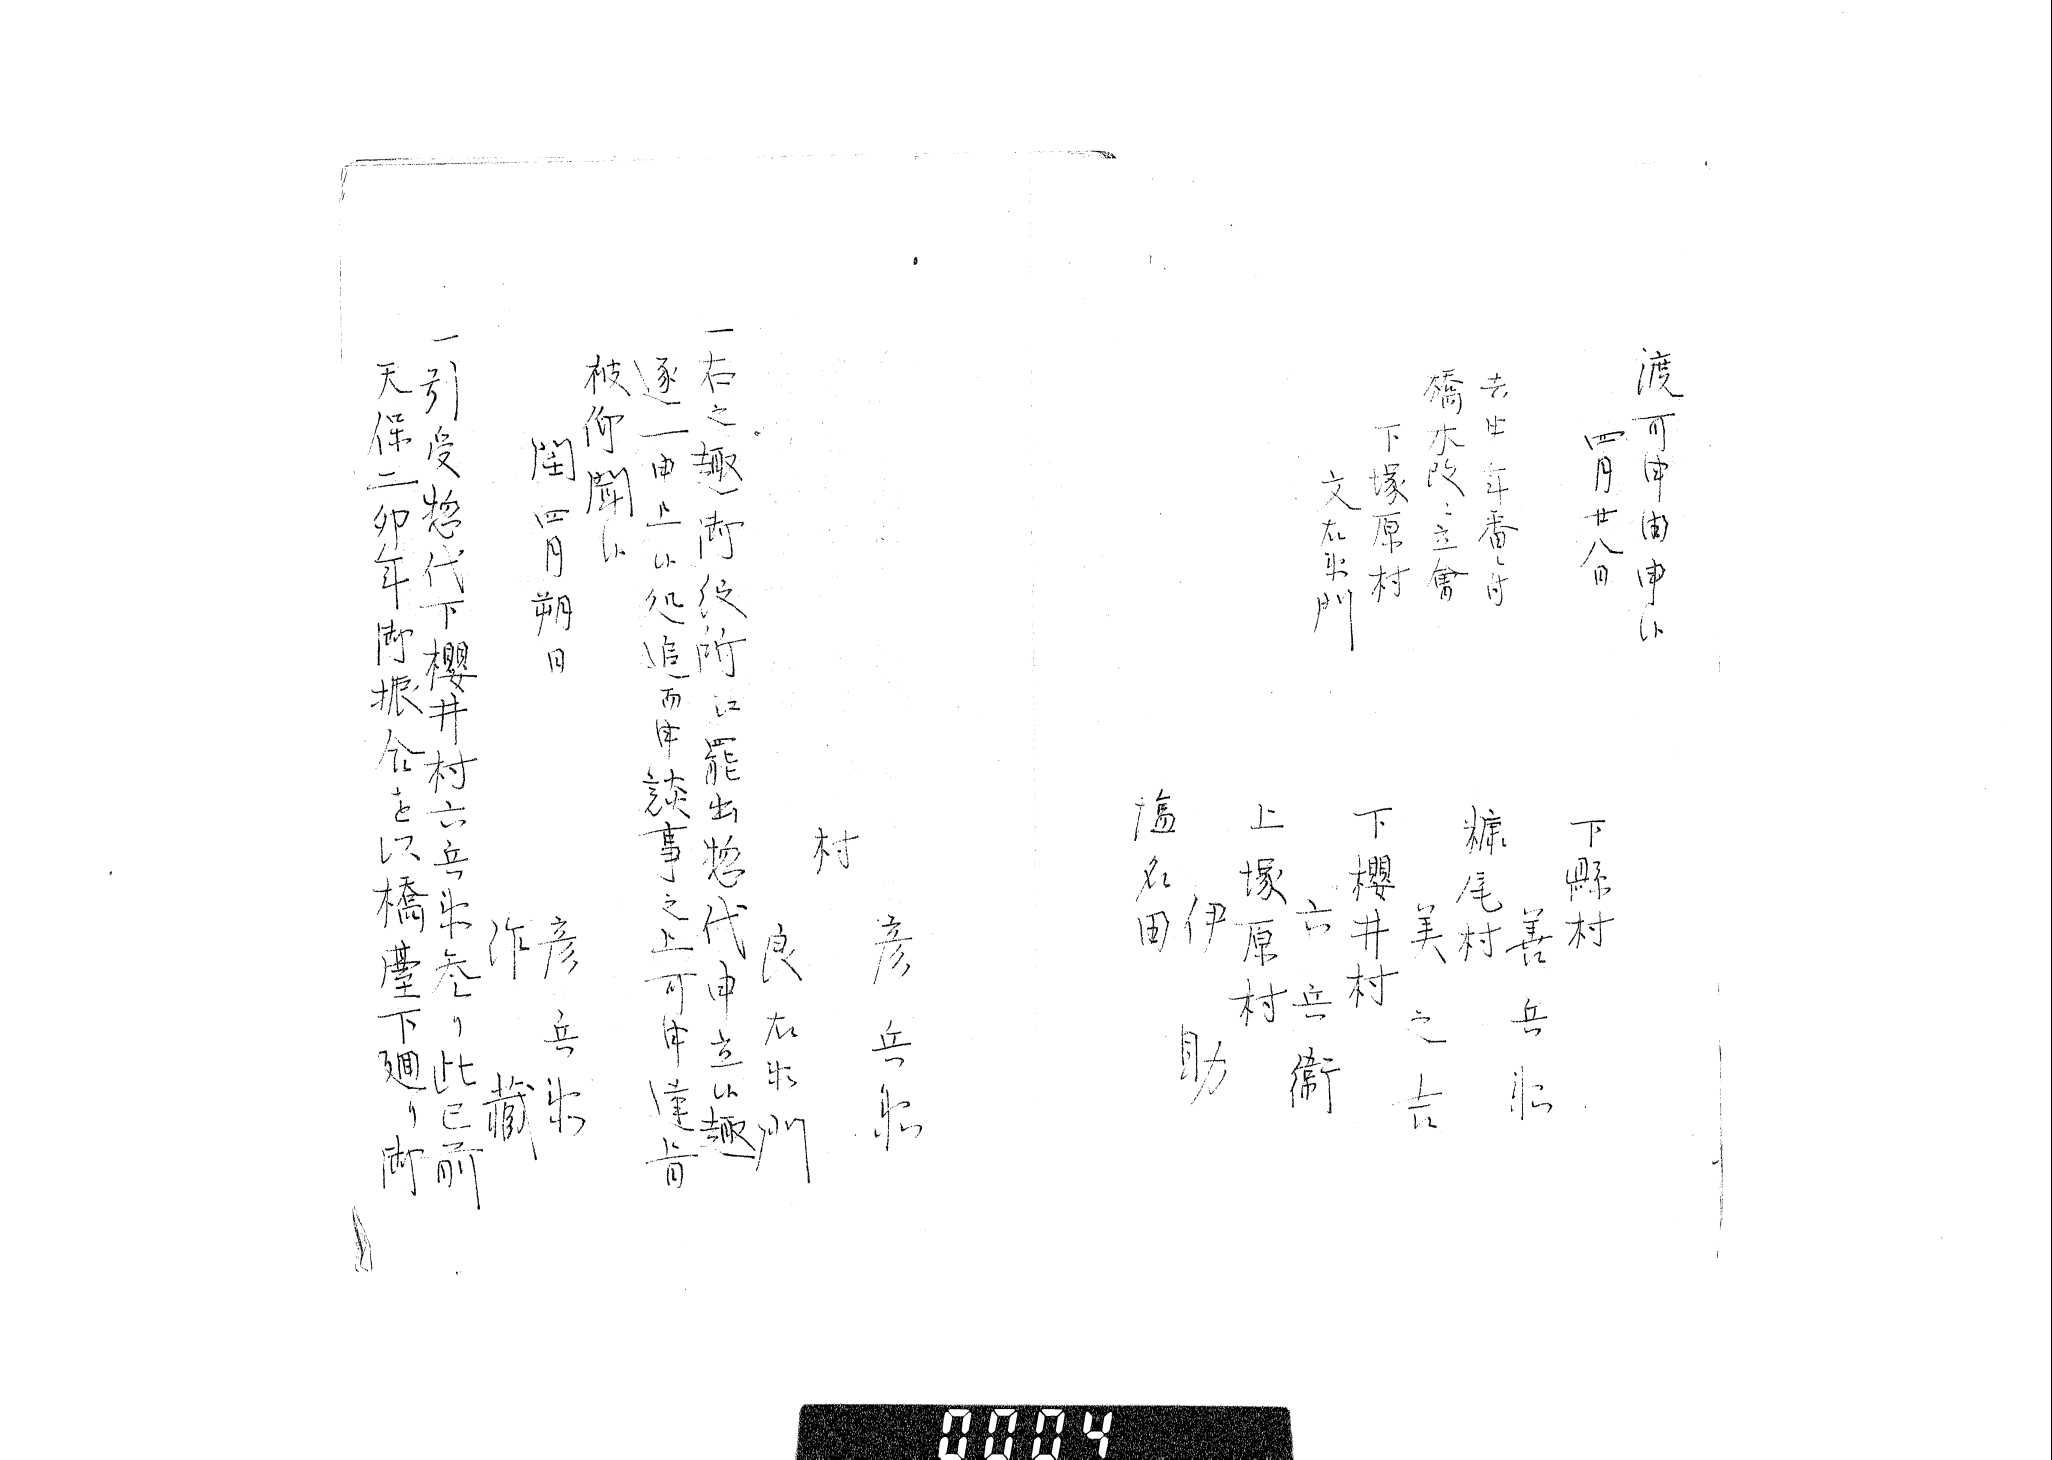 渡可申由申候
四月廿八日
去丑年番ニ付
橋水改ニ立會
下塚原村
文右衛門
下縣村
善兵衛
糠尾村
美之吉
下櫻井村
六兵衛
上塚原村
伊助
塩名田
彦兵衛
村
良右衛門
一右之趣御役所江罷出惣代申立候趣
逐一申上候処追而申談事之上可申達旨
被仰聞候
閏四月朔日
彦兵衛
作藏
一引受惣代下櫻井村六兵衛参り此已前
天保二卯年御振合を以橋臺下廻り御
0004